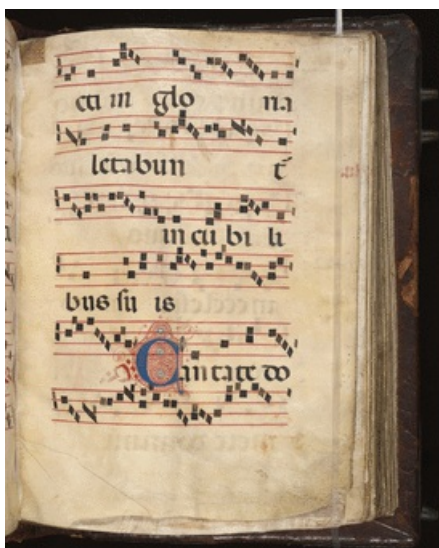 cti in glo ria
letabun t̄
in cu bi li
bus su is
Cantate do